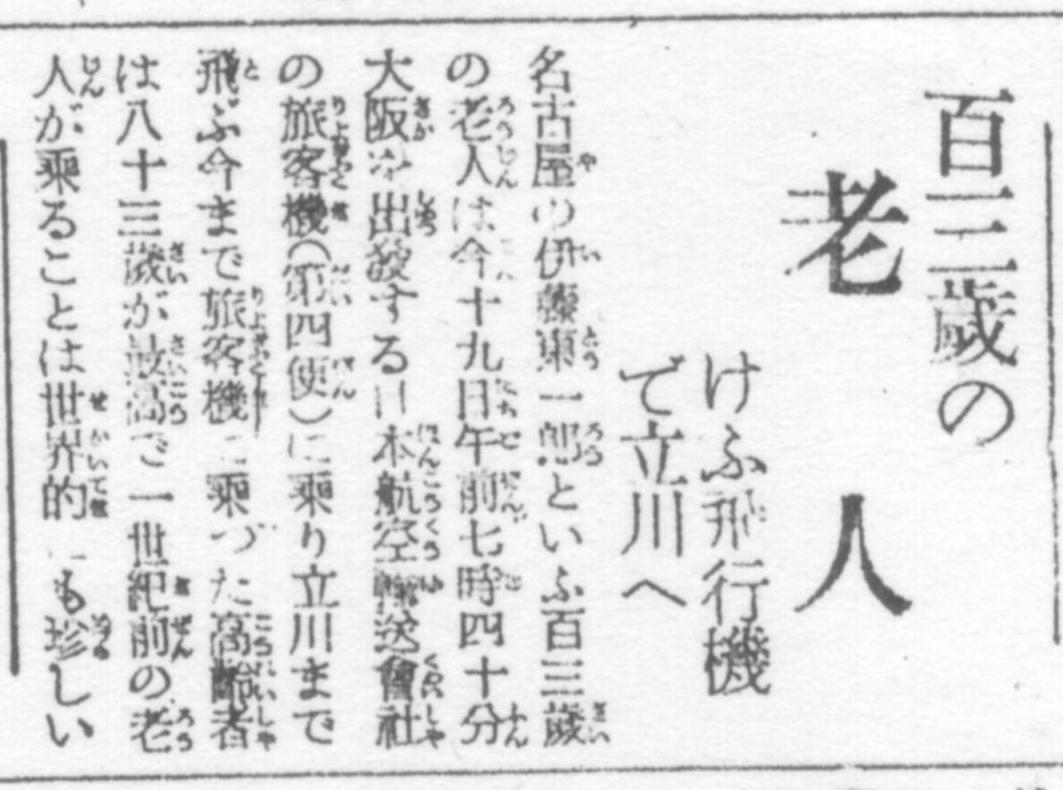 百三歳の
老人
けふ飛行機
で立川へ
名古屋の伊藤東一郎といふ百三歳
の老人は今十九日午前七時四十分
大阪を出發する日本航空輸送會社
の旅客機（第四便）に乘り立川まで
飛ぶ今まで旅客機に乘つた高齡者
は八十三歳が最高で一世紀前の老
人が乘ることは世界的にも珍しい